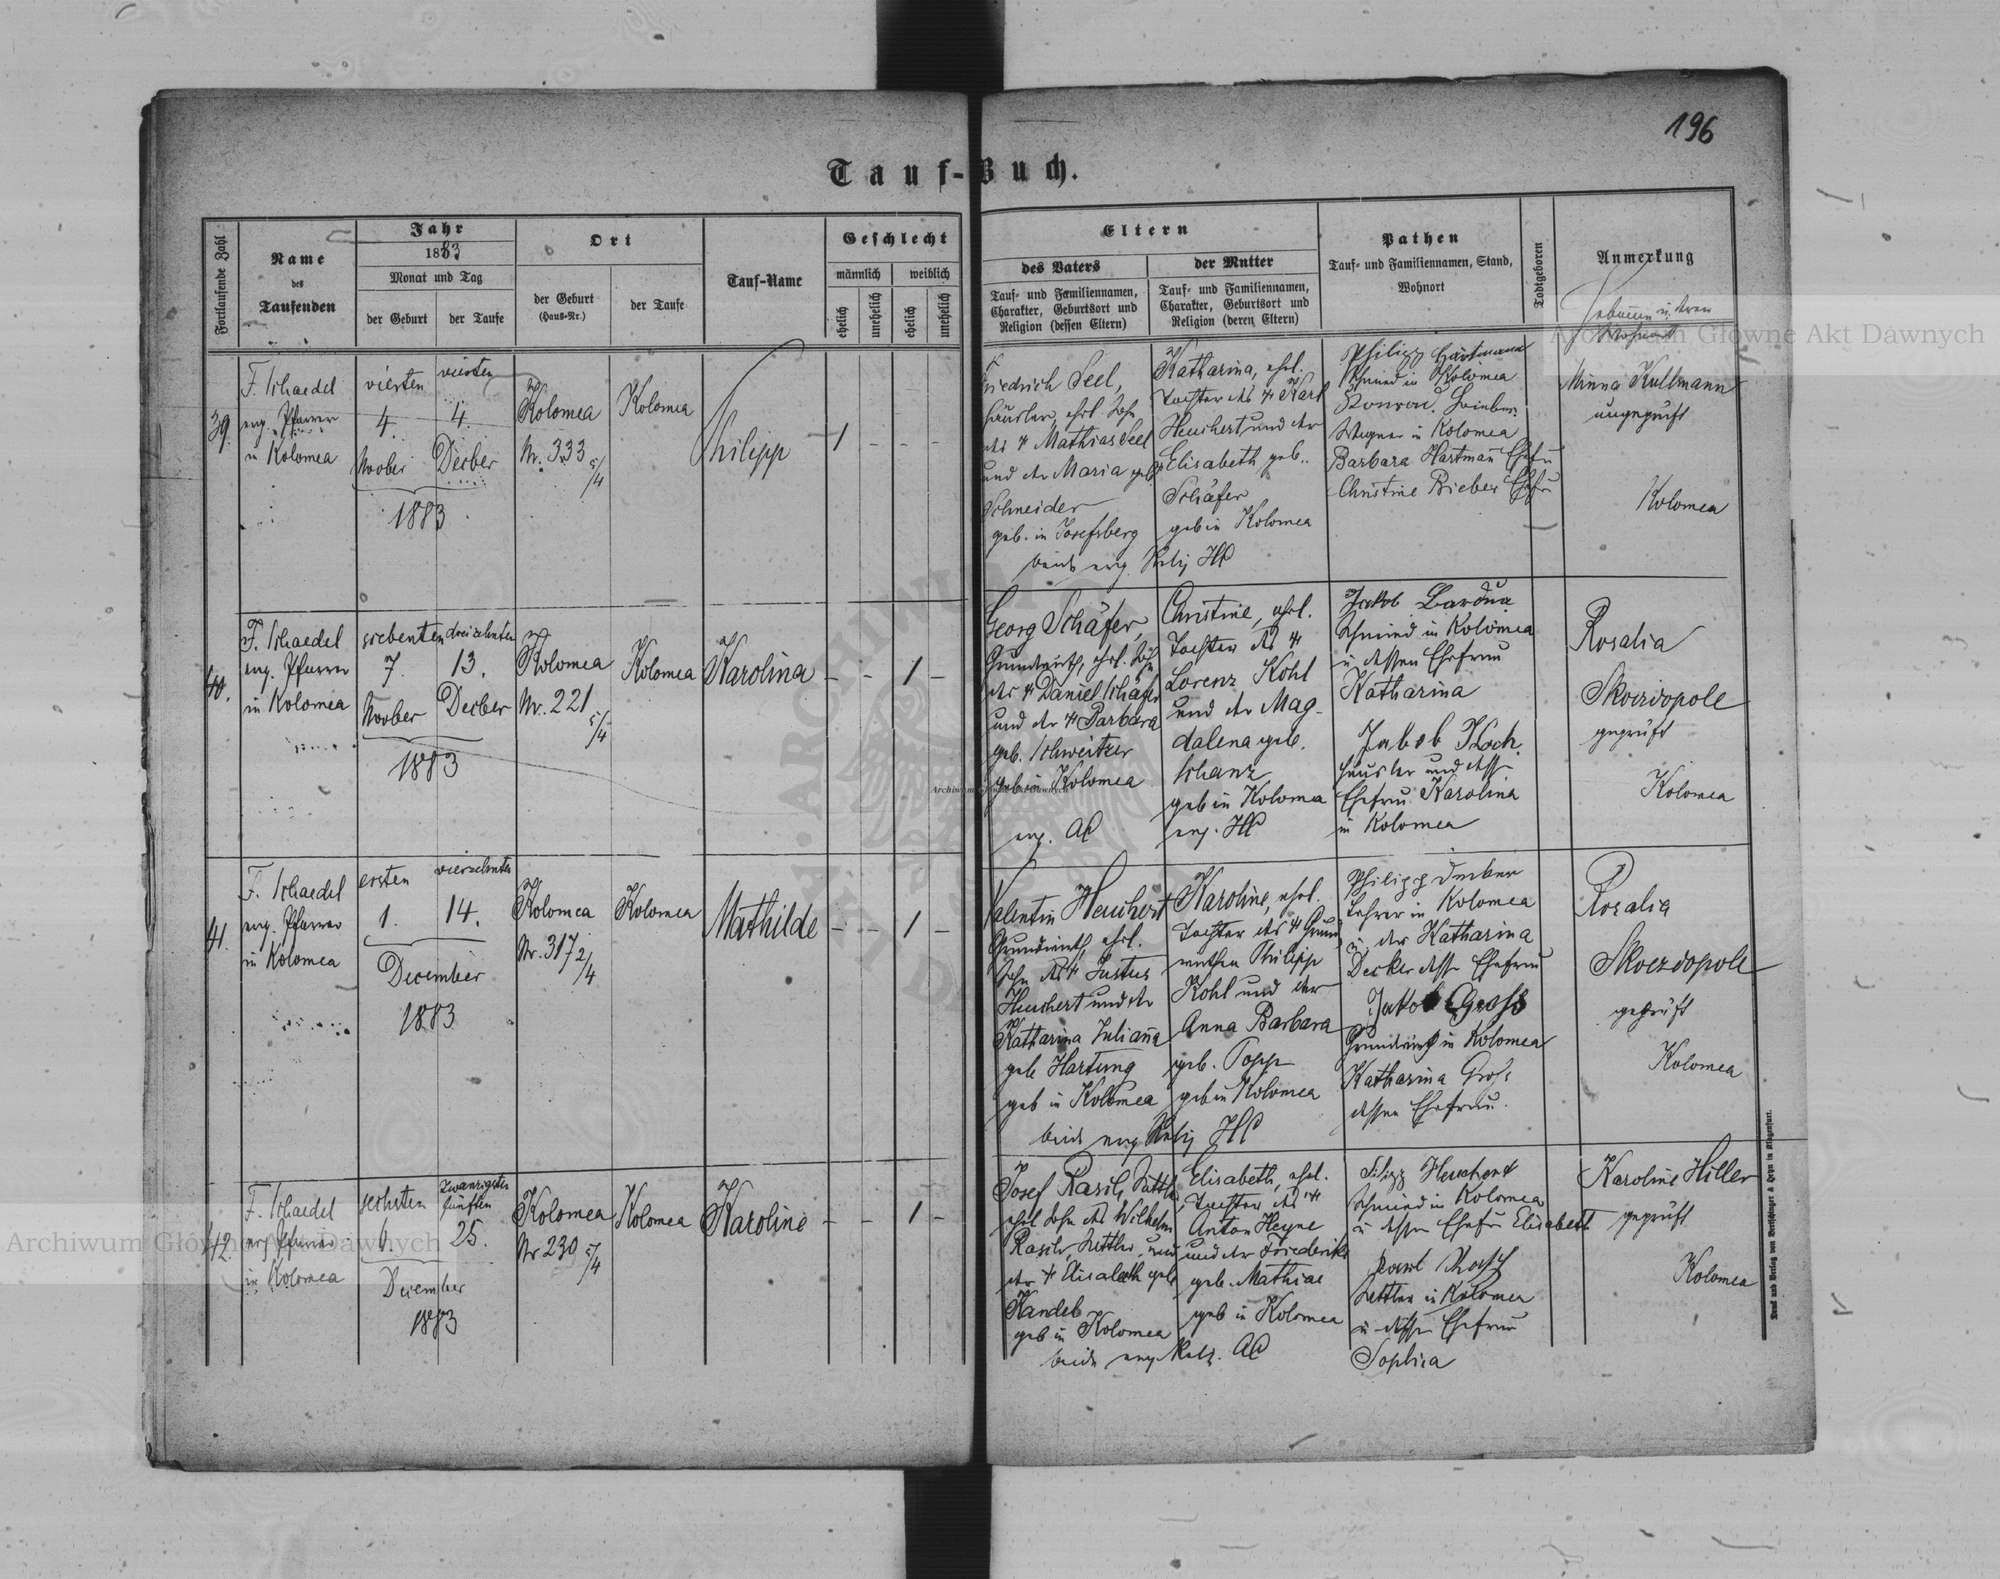 196
Tauf-Buch.
Fortlaufende Zahl
Name
des
Taufenden
Jahr
1883
Monat und Tag
der Geburt
der Taufe
Ort
der Geburt
(Haus-Nr.)
der Taufe
Tauf-Name
Geschlecht
männlich
weiblich
ehelich
unehelich
ehelich
unehelich
Eltern
des Vaters
Tauf- und Familiennamen,
Charakter, Geburtsort und
Religion (dessen Eltern)
der Mutter
Tauf- und Familiennamen,
Charakter, Geburtsort und
Religion (deren Eltern)
Pathen
Tauf- und Familiennamen, Stand,
Wohnort
Todtgeboren
Anmerkung
39.
F. Schaedel
evg. Pfarrer
in Kolomea
vierten
4.
Novber
vierten
4.
Decber
1883
Kolomea
Nr. 333
5/4
Kolomea
Philipp
1 - - -
Friedrich Seel,
Häusler, ehel. Sohn
des † Mathias Seel
und der Maria geb
Schneider
geb. in Josefsberg
Katharina, ehel.
Tochter des † Karl
Heuchert und der
Elisabeth geb.
Schäfer
geb in Kolomea
beide evg. Relig HC
Philipp Hartmann
Schmied in Kolomea
Wagner in Kolomea
Barbara Hartmañ Ehefr
Christine Bieber Ehefr
Minna Kullmann
ungeprüft
Kolomea
40.
F. Schaedel
evg. Pfarrer
in Kolomea
siebenten
7.
Novber
dreizehnten
13.
Decber
1883
Kolomea
Nr. 221
5/4
Kolomea
Karolina
- - 1 -
Georg Schäfer,
Grundwirth, ehel. Sohn
des † Daniel Schäfer
und der † Barbara
geb. Schweitzer
geb in Kolomea
evg. AC
Christine, ehel.
Tochter des †
Lorenz Kohl
und der Mag-
dalena geb.
Schanz
geb in Kolomea
evg. HC
Jakob Bardua
Schmied in Kolomea
u dessen Ehefrau
Katharina
Jakob Koch
Häusler und dess
Ehefrau Karolina
in Kolomea
Rosalia
Skoezdopole
geprüft
Kolomea
41.
F. Schaedel
evg. Pfarrer
in Kolomea
ersten
1.
vierzehnten
14.
December
1883
Kolomea
Nr. 317
2/4
Kolomea
Mathilde
- - 1 -
Valentin Heuchert
Grundwirth, ehel.
Sohn des † Justus
Heuchert und der
Katharina Juliaña
geb Hartung
geb in Kolomea
Karoline, ehel.
Tochter des † Grund
wirthen Philipp
Kohl und der
Anna Barbara
geb. Popp
geb in Kolomea
beide evg Relig HC
Philipp Decker
Lehrer in Kolomea
u. der Katharina
Decker dess Ehefrau
Jakob Gross
Grundwirt in Kolomea
Katharina Gross
dessen Ehefrau.
Rosalia
Skoezdopole
geprüft
Kolomea
42.
F. Schaedel
evg Pfarrer
in Kolomea
sechsten
6.
zwanzigsten
fünften
25.
December
1883
Kolomea
Nr 230
5/4
Kolomea
Karoline
- - 1 -
Josef Rasch, Sattler
ehel Sohn des Wilhelm
Rasch, Sattler, und
der † Elisabeth geb
Kandel
geb in Kolomea
Elisabeth, ehel.
Tochter des †
Anton Heyne
und der Friederike
geb. Mathias
geb in Kolomea
beide evg Relg. AC
Filipp Heuchert
Schmied in Kolomea
u dessen Ehefr Elisabeth
Karl Rasch
Sattler in Kolomea
u dessen Ehefrau
Sophia
Karoline Hiller
geprüft
Kolomea
Archiwum Główne Akt Dawnych
Archiwum Główne Akt Dawnych
Archiwum Główne Akt Dawnych